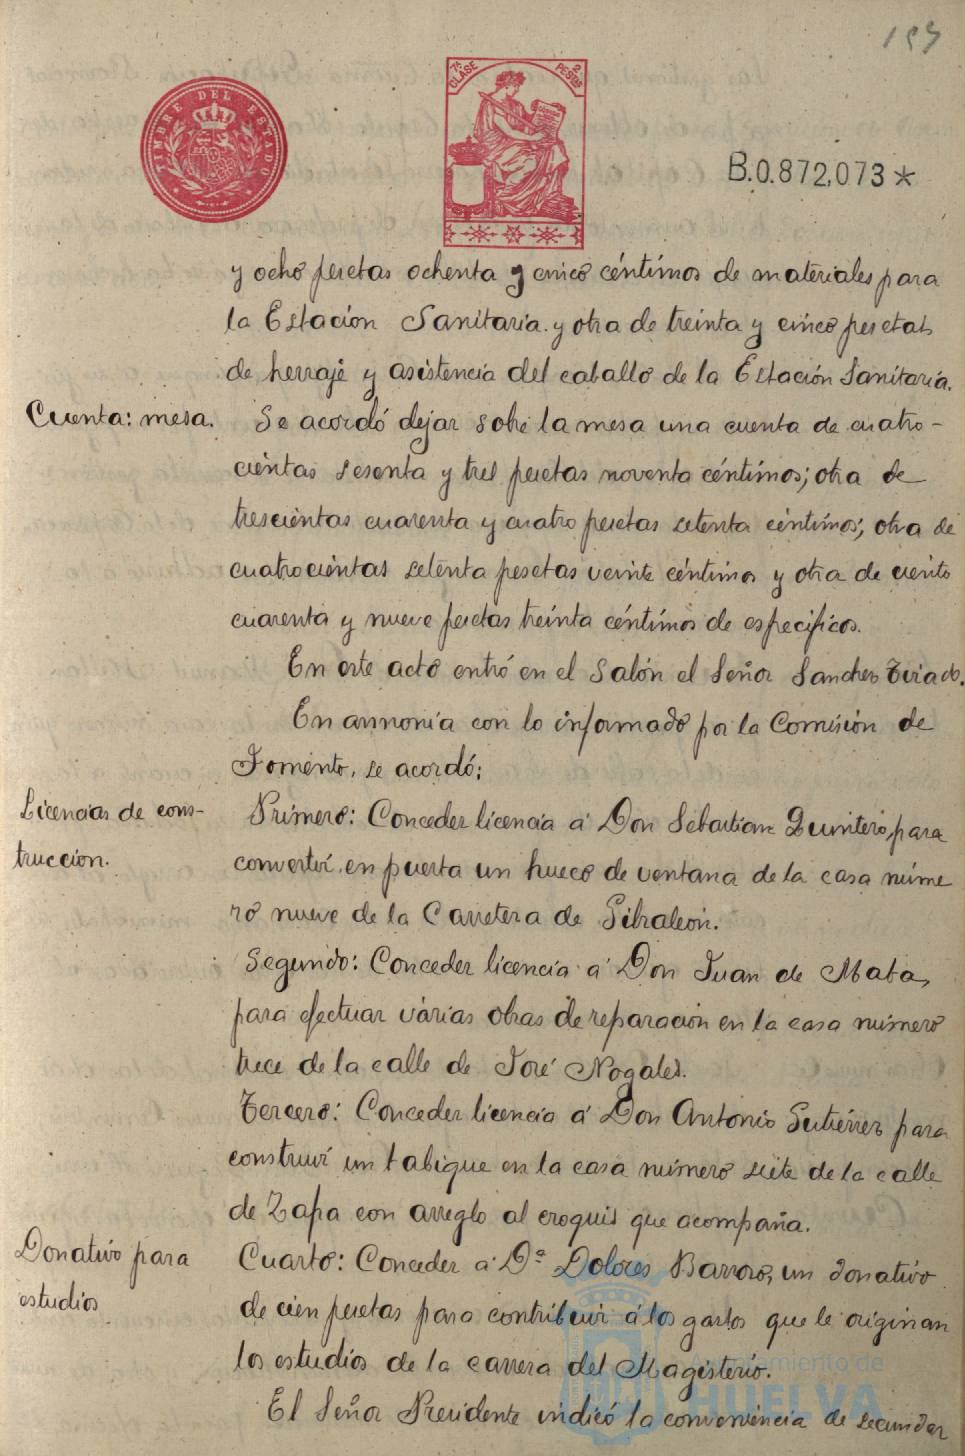 TIMBRE DEL ESTADO
7ª CLASE
2 PESETAS
B.0.872,073*
y ocho pesetas ochenta y cinco céntimos de materiales para
la Estación Sanitaria y otra de treinta y cinco pesetas
de herraje y asistencia del caballo de la Estación Sanitaria.
Cuenta: mesa.
Se acordó dejar sobre la mesa una cuenta de cuatro-
cientas sesenta y tres pesetas noventa céntimos; otra de
trescientas cuarenta y cuatro pesetas setenta céntimos; otra de
cuatrocientas setenta pesetas veinte céntimos y otra de ciento
cuarenta y nueve pesetas treinta céntimos de específicos.
En este acto entró en el Salón el Señor Sanchez Tirado.
En armonía con lo informado por la Comisión de
Fomento, se acordó:
Licencias de cons-
trucción.
Primero: Conceder licencia á Don Sebastian Quintero, para
convertir en puerta un hueco de ventana de la casa núme
ro nueve de la Carretera de Gibraleón.
Segundo: Conceder licencia á Don Juan de Mata,
para efectuar várias obras de reparación en la casa número
trece de la calle de José Nogales.
Tercero: Conceder licencia á Don Antonio Gutiérrez para
construir un tabique en la casa número siete de la calle
de Zafa con arreglo al croquis que acompaña.
Donativo para
estudios
Cuarto: Conceder á Dª Dolores Barroso, un donativo
de cien pesetas para contribuir á los gastos que le originan
los estudios de la carrera del Magisterio.
El Señor Presidente indicó la conveniencia de secundar
Ayuntamiento de
HUELVA